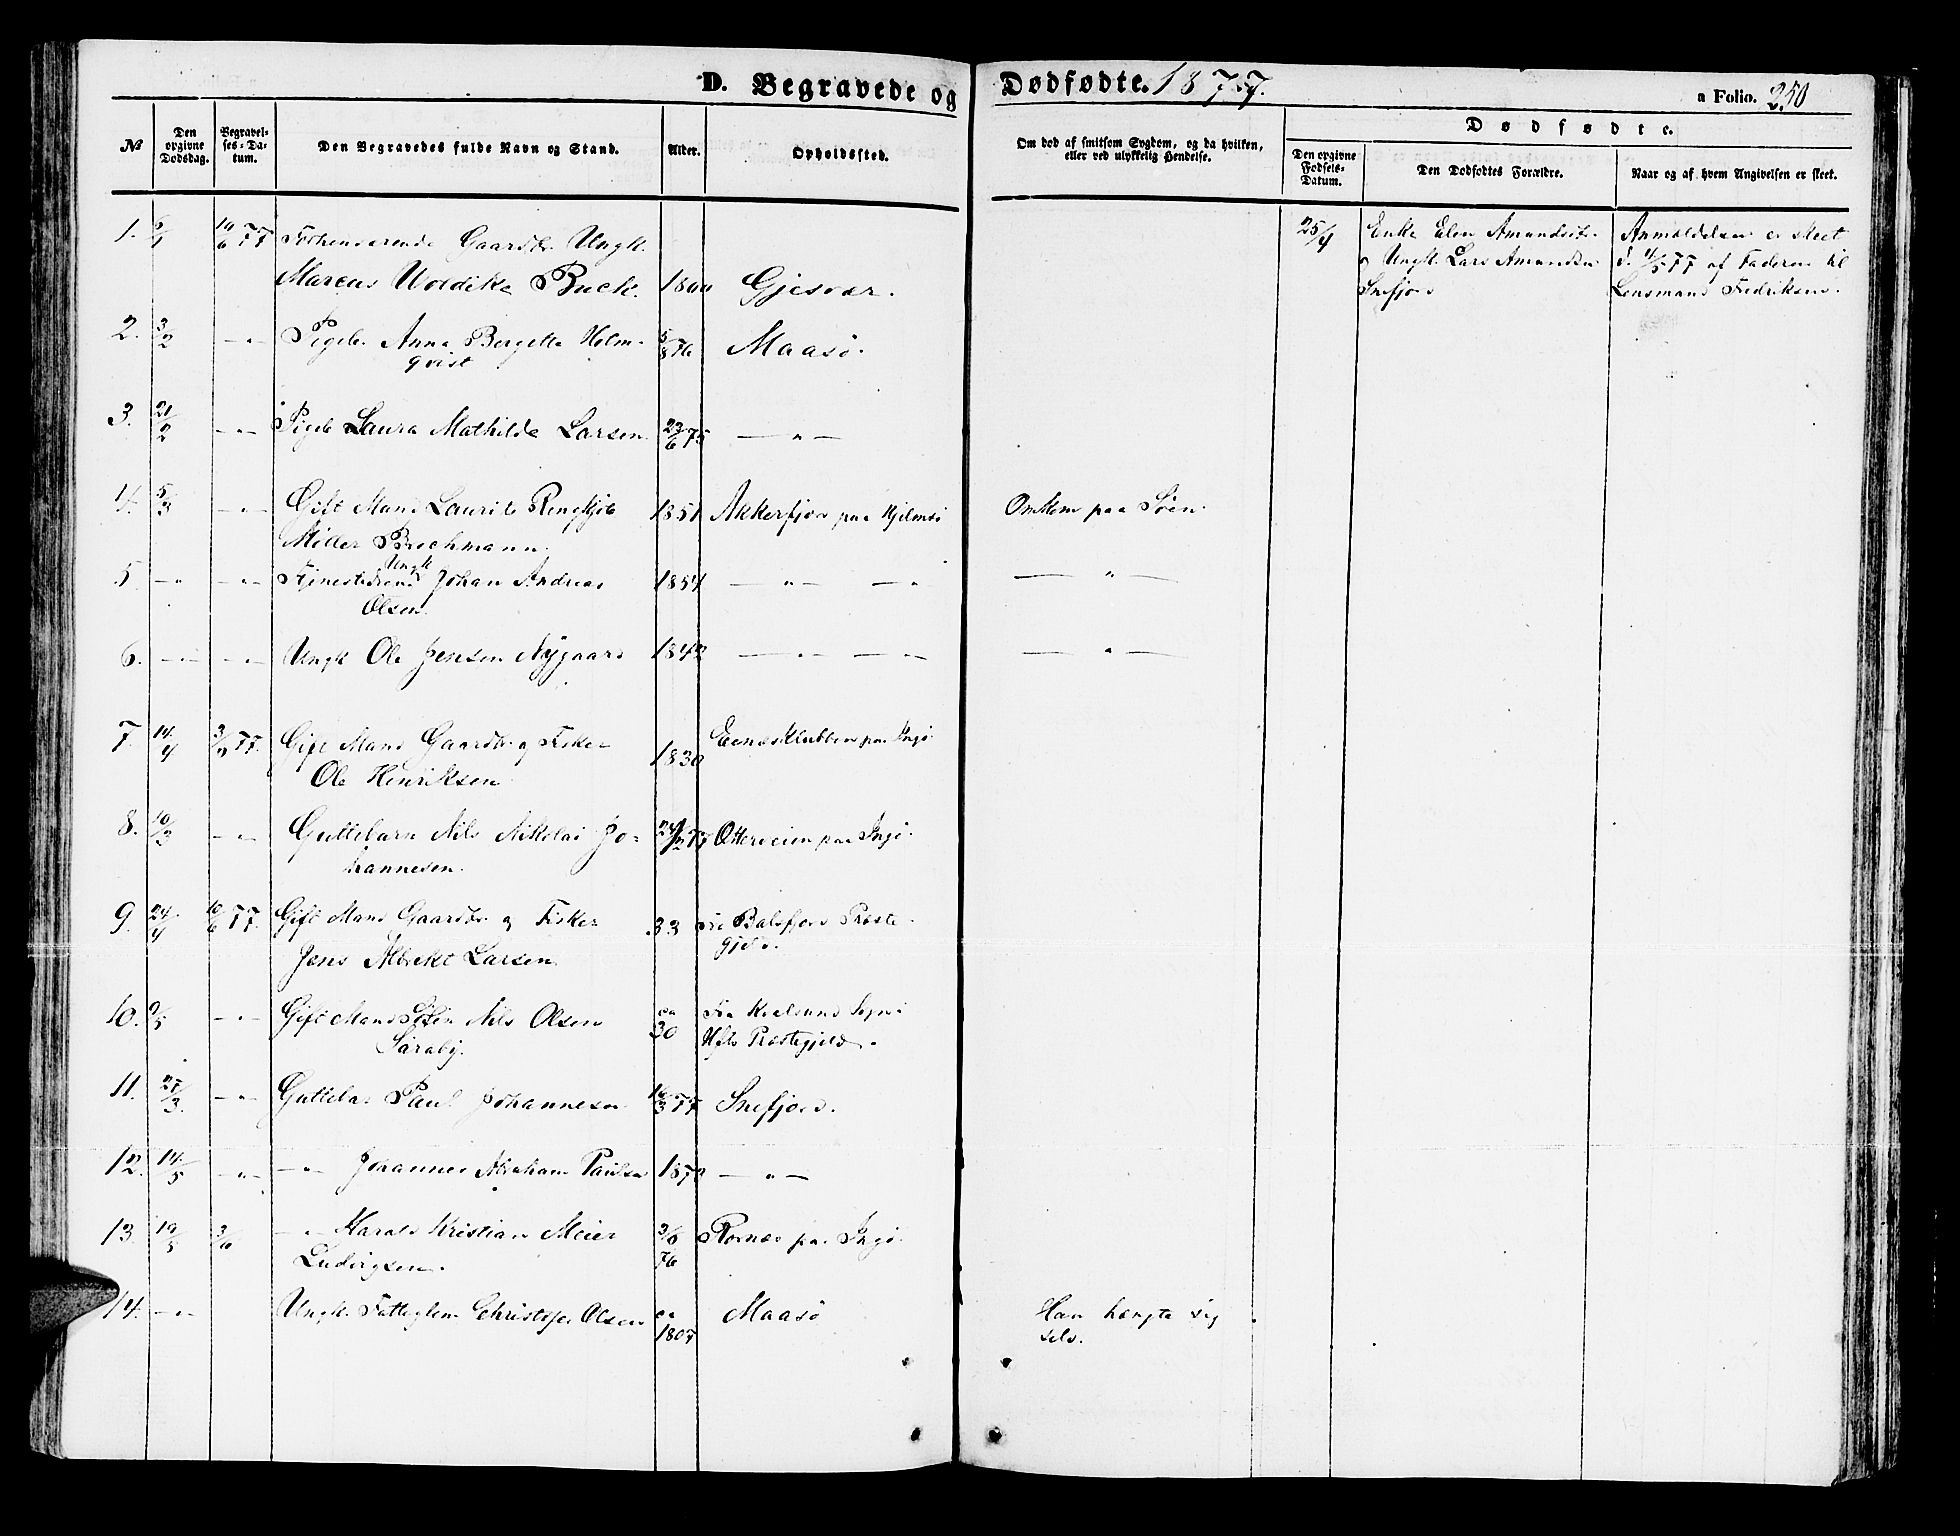 D. Begravede og Dødfødte. 1877.
a Folio. 250
№
Den opgivne Dødsdag.
Begravelses-Datum.
Den Begravedes fulde Navn og Stand.
Alder.
Opholdssted.
Om død af smitsom Sygdom, og da hvilken, eller ved ulykkelig Hendelse.
Dødfødte.
Den opgivne Fødsels-Datum.
Den Dødfødtes Forældre.
Naar og af hvem Angivelsen er skeet.
1. 10/6 77 Forhenværende Gaardbr. Ungk.
Marcus Woldike Buck. 1800 Gjesvær.
25/4 Enke Elen Amundsdtr
Ungk. Lars Amundsen
Snefjord
Anmeldelsen er skeet
d. 4/5 77 af Faderen til
Lensmand Fredriksen.
2. 3/2 -"- Pigeb. Anna Bergette Holm-
qvist 5/8 76 Maasö.
3. 21/2 -"- Pigeb Laura Mathilde Larsen 75 -"-
4. 5/3 -"- Gift Mand Laurits Ringkjøb
Möller Brochmann. 1851 Akkerfjord paa Hjelmsö Omkom paa Söen.
5. -"- -"- Tjenestedreng Ungk Johan Andreas
Olsen. 1854 -"- -"- -"-
6. -"- -"- Ungk Ole Jensen Nygaard 1842 -"- -"- -"-
7. 14/4 77. Gift Mand Gaardbr og Fisker
Ole Henriksen 1830 paa Ingö.
8. 10/3 -"- Guttebarn Nils Nikolai Jo-
hannesen. 77 Otterveien paa Ingö.
9. 24/4 10/6 77. Gift Mand Gaardbr. og Fisker
Jens Albrekt Larsen 33 Fra Balsfjord Præste-
gjeld.
10. 9/5 -"- Gift Mand Nils Olsen
Saraby. ca
30 Fra Kvalsund Sogn i
Hfts Præstegjeld.
11. 27/3. -"- Guttebar Paul Johannesen 16/3 77 Snefjord.
12. 14/5 -"- -"- Johannes Abraham Paulsen -"-
13. 19/5 3/6 -"- Harald Kristian Meier
Ludvigsen. 3/6
76 paa Ingö.
14. -"- Ungk. Fattiglem Christofer Olsen ca
1807 Maasö Han hængte sig
selv.